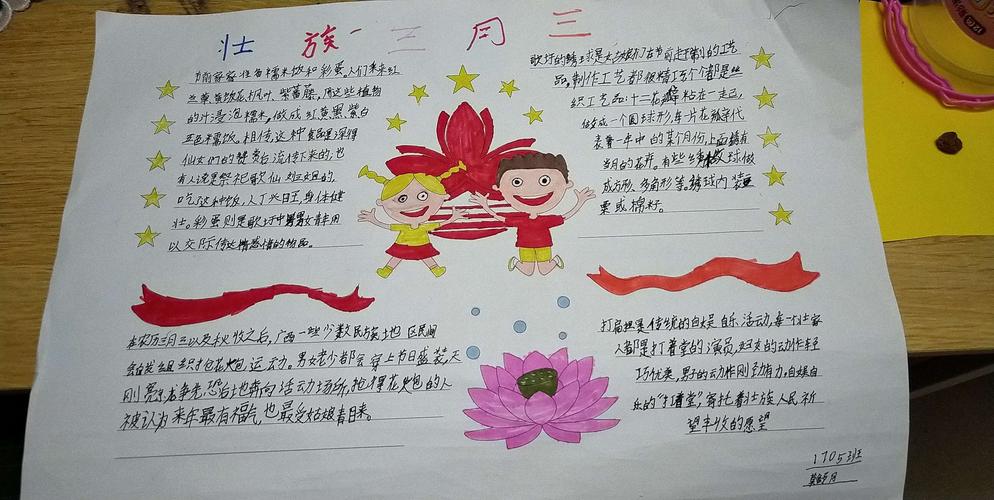 壮族三周三
节前家家准备糯米饭和彩蛋。人们采来红
兰草、黄饭花、枫叶、紫蕃藤,用这些植物
的汁浸泡糯米,做成红、黄、黑、紫、白
五色糯饭。相传这种食品深得
仙女们的赞赏后流传下来的;也
有人说是祭祀歌仙刘三姐的,
吃了这种饭,人丁兴旺,身体健
壮。彩蛋则是歌圩中男女青年用
以交际传达情感的物品。
歌圩的绣球是姑娘们节前赶制的工艺
品,制作工艺都很精巧个个都是丝
织工艺品十二花瓣粘在一起,
做成一个圆球形,每一片花瓣代
表着一年中的某个月份,上面绣有
当月的花卉。有些绣球做
成方形、多角形等。绣球内装
粟或棉籽。
在农历三月三以及秋收之后,广西一些少数民族地区民间
自发组织抢花炮运动。男女老少都会穿上节日盛装,天
刚亮就争先恐后地朝向活动场所,抢得花炮的人
被认为来年最有福气,也最受姑娘青睐。
打扁担是传统的自娱自乐活动,每一个壮家
人都是打着堂的演员,妇女的动作轻
巧优美,男子的动作刚劲有力,自娱自
乐的"打着堂",寄托着壮族人民祈
望丰收的愿望
1705班